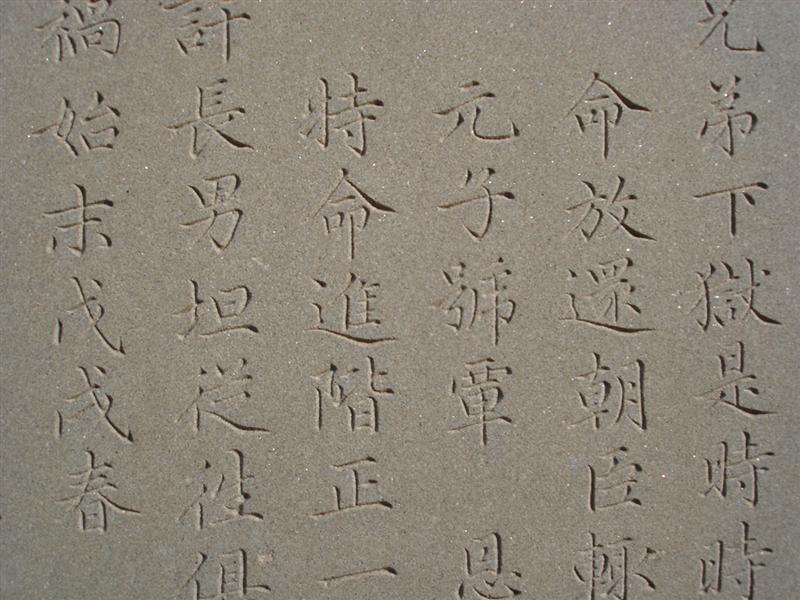 兄弟下獄是時時
命放還朝臣輒
元子號覃 恩
特命進階正一
許長男坦從往俱
禍始末戊戌春